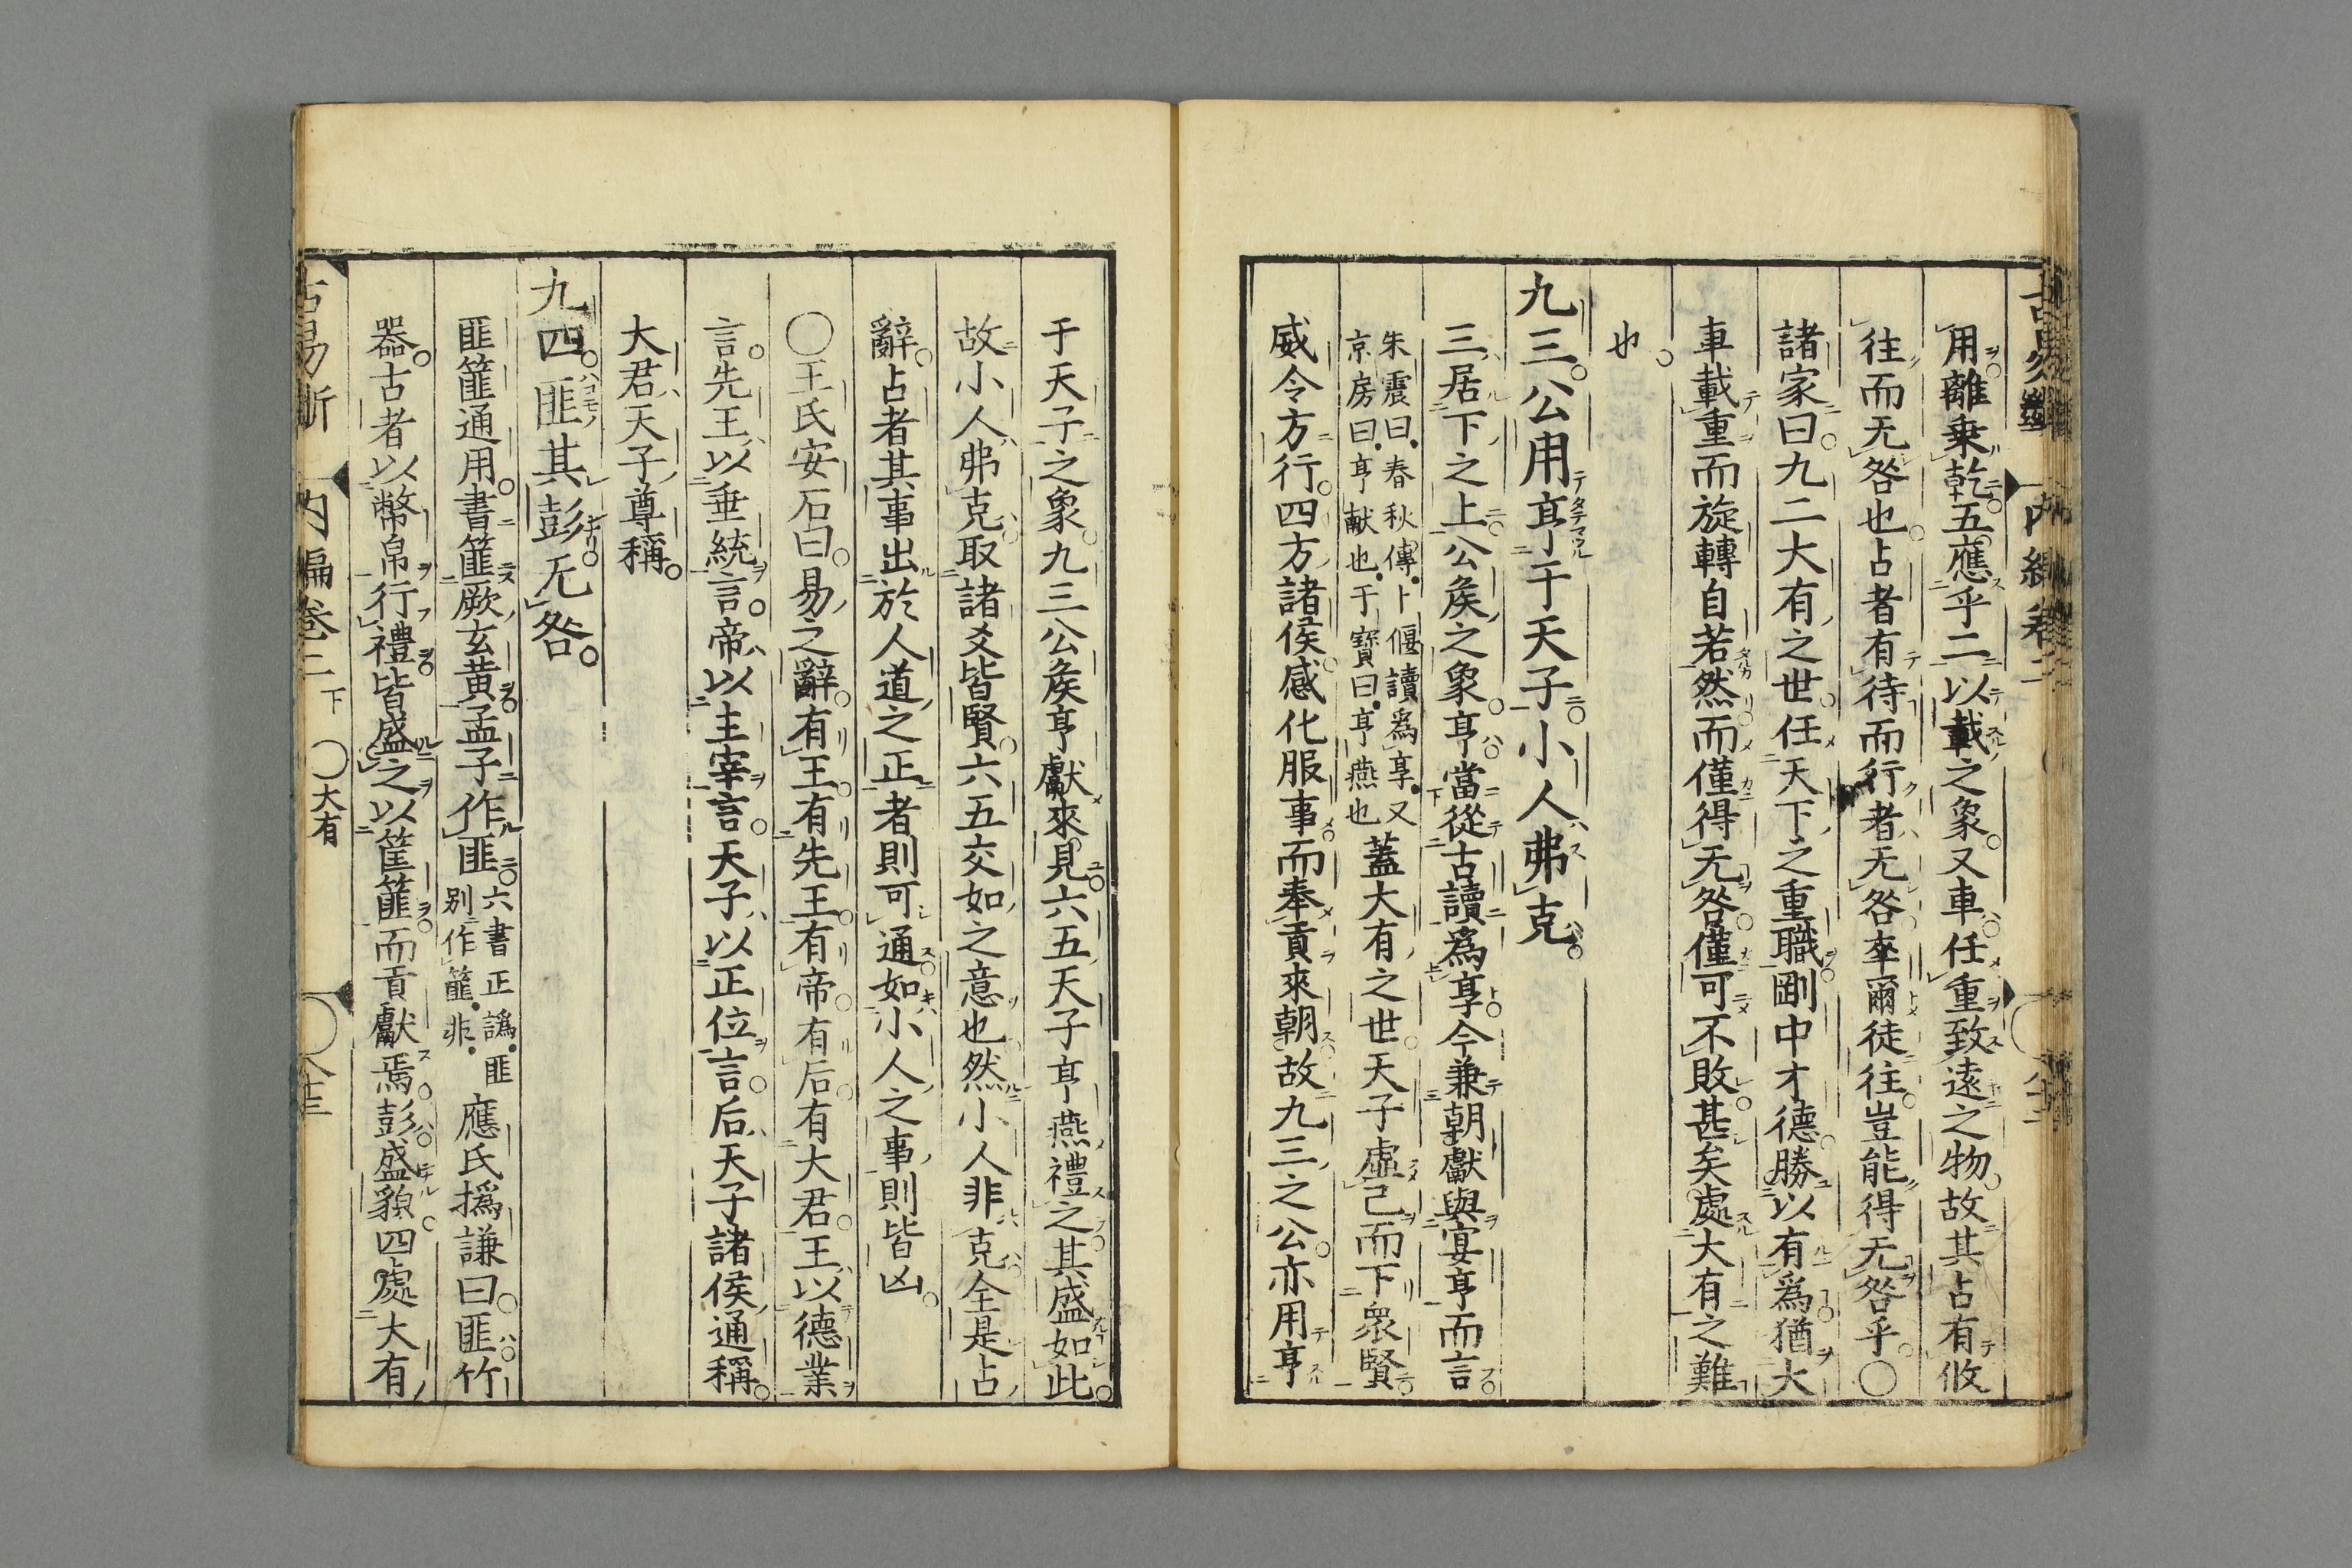 用離乗乾五應乎二以載之象又車任重致遠之物故其占有攸
往而无咎也占者有待而行者无咎率爾徒往豈能得无咎乎○
諸家曰九二大有之世任天下之重職剛中才德勝以有爲猶大
車載重而旋轉自若然而僅得无咎僅可不敗甚矣處大有之難
也
九三公用亨于天子小人弗克
三居下之上公矦之象亨當從古讀爲享今兼朝獻與宴亨而言
朱震曰春秋傳卜偃讀爲享又
京房曰亨献也干寶曰亨燕也
蓋大有之世天子虛己而下衆賢
威令方行四方諸侯感化服事而奉貢來朝故九三之公亦用亨
于天子之象九三公矦亨獻來見六五天子亨燕禮之其盛如此
故小人弗克取諸爻皆賢六五交如之意也然小人非克全是占
辭占者其事出於人道之正者則可通如小人之事則皆凶
○王氏安石曰易之辭有王有先王有帝有后有大君王以德業
言先王以垂統言帝以主宰言天子以正位言后天子諸侯通稱
大君天子尊稱
九四匪其彭无咎
匪篚通用書篚厥玄黄孟子作匪
六書正譌匪
别作篚非
應氏撝謙曰匪竹
器古者以幣帛行禮皆盛之以筐篚而貢獻焉彭盛貌四處大有
古易斷 内編卷二下 ○大有